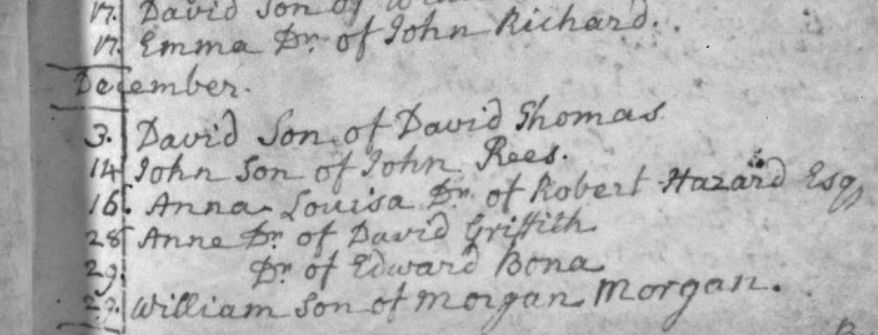 17. David Son of
17. Emma Dr. of John Richard.
December.
3. David Son of David Thomas
14 John Son of John Rees.
16. Anna Louisa Dr. of Robert Hazard Esq
28 Anne Dr. of David Griffith
29. Dr. of Edward Bona
29. William Son of Morgan Morgan.